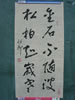 金石不随波
松柏知歲寒